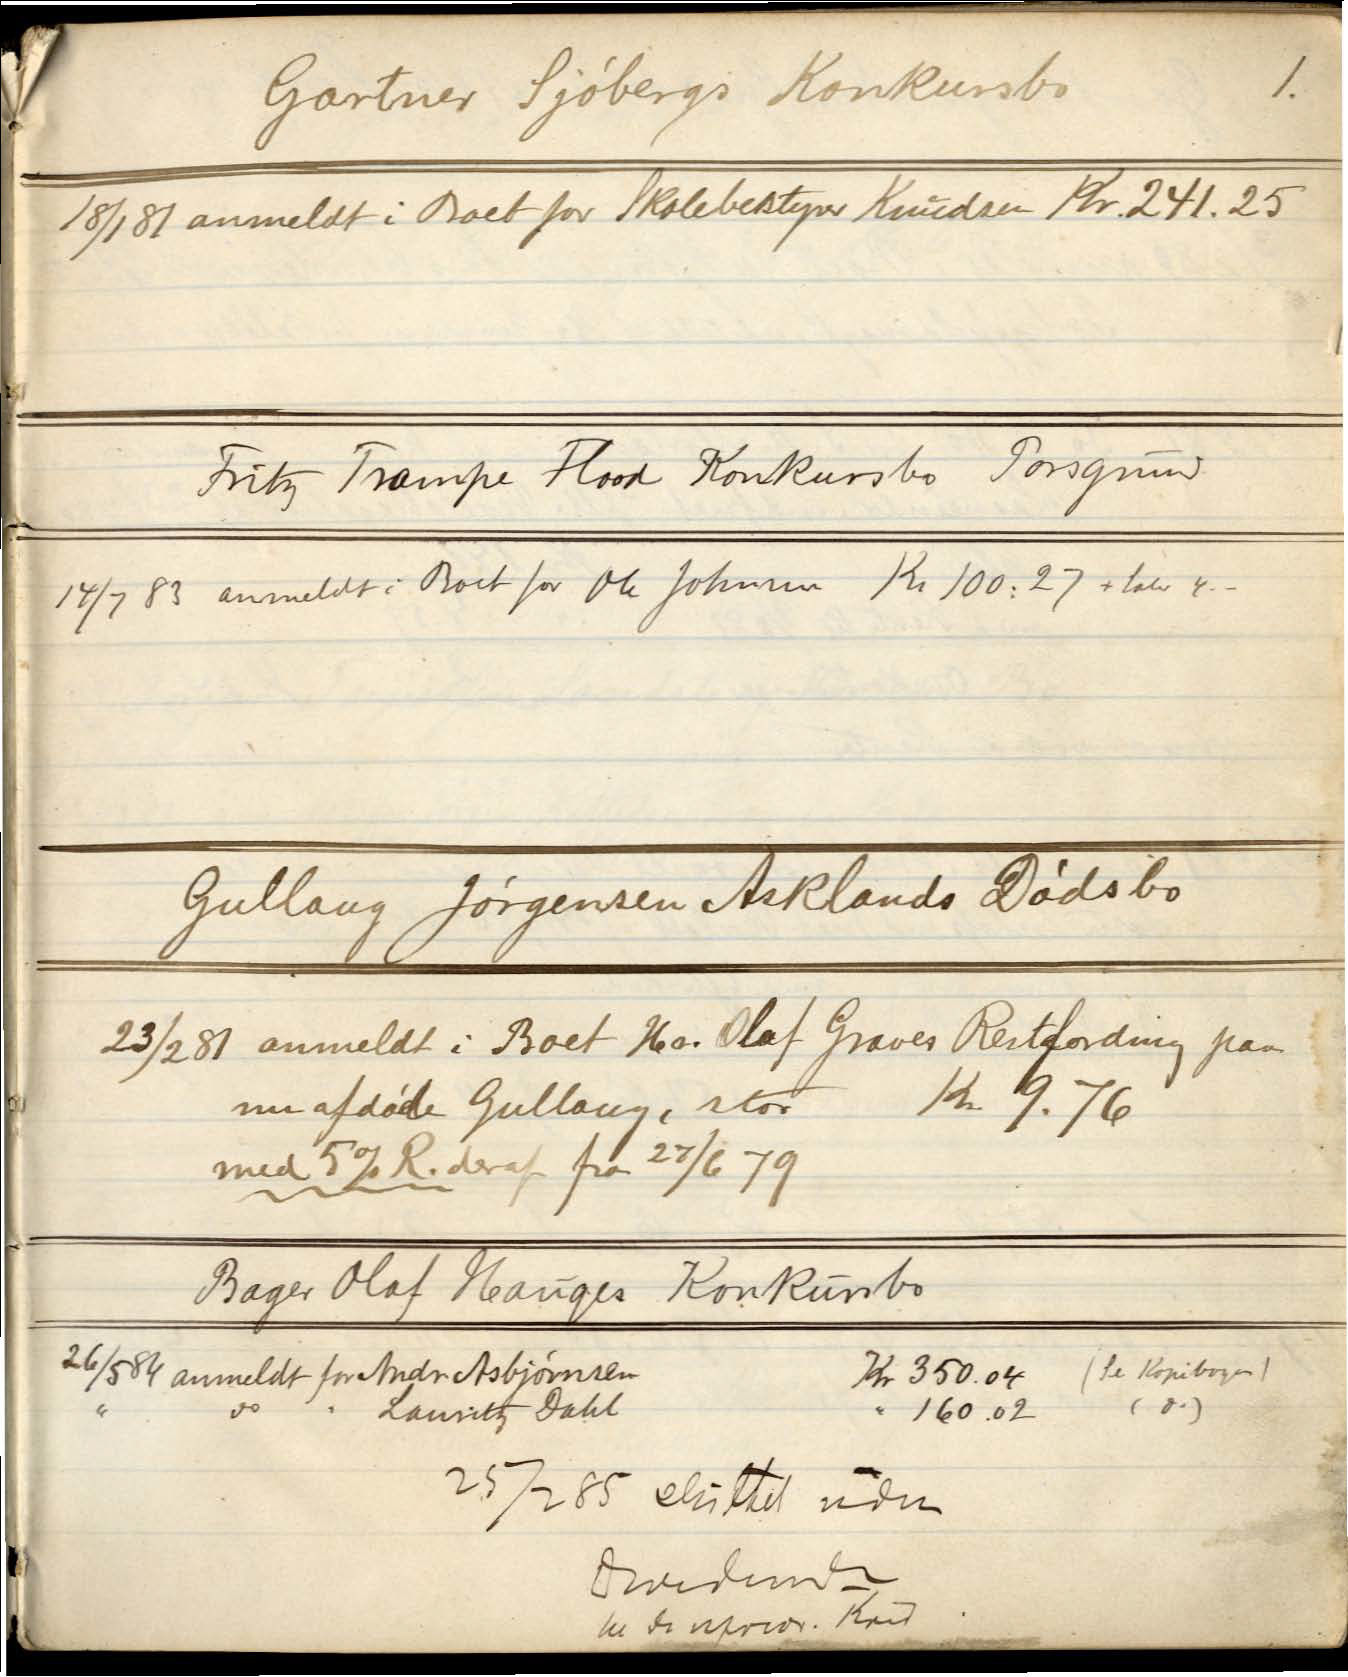 Gartner Sjöbergs Konkursbo 1.
18/1 81 anmeldt i Boet for Skolebestyrer Knudsen Kr. 241.25
Fritz Trampe Flood Konkursbo Porsgrund
14/7 83 anmeldt i Boet for Ole Johnsen Kr 100:27 +
Gullaug Jörgensen Asklands Dödsbo
23/2 81 anmeldt i Boet Ha. Olaf Graves Restfordring paa
nu afdöde Gullaug, stor Kr 9.76
med 5% R. deraf fra 27/6 79
Bager Olaf Hauges Konkursbo
26/5 84 anmeldt for Andr Asbjörnsen Kr 350.04 (Se Kopibogen)
" do " Lauritz Dahl " 160.02 ( do )
25/2 85 sluttet uden
Dividende
til de uprior. Kred